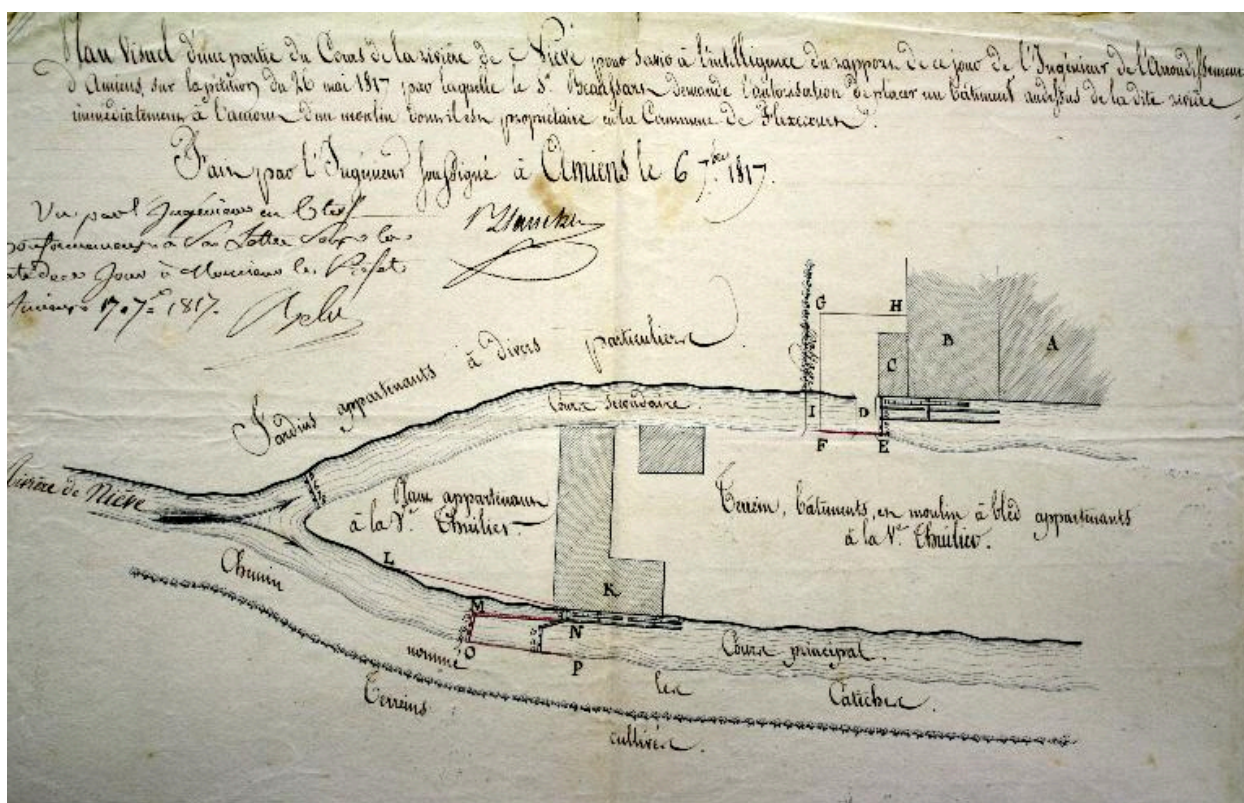 Plan Visuel d'une partie du Cours de la rivière de Nièvre pour servir à l'intelligence du rapport de ce jour de l'Ingénieur de l'Arrondissement
d'Amiens, sur la pétition du 26 mai 1817 par laquelle le Sr. demande l'autorisation de placer un bâtiment audessus de la dite rivière
immédiatement à l'amont d'un moulin dont il est propriétaire en la Commune de Flixecourt.
Fait par l'Ingénieur soussigné à Amiens le 6 7bre 1817.
Vu par l'Ingénieur en Chef
conformément à Sa Lettre Sous la
date de ce Jour à Monsieur le Préfet
Amiens 17 7re 1817.
Jardins appartenants à divers particuliers.
G H
B A
C
Cours secondaire.
I D
F E
Rivière de Nièvre
Place appartenant
à la Ve. Thuilier
Terrein, bâtiments, et moulin à bled appartenants
à la Ve. Thuilier.
L
Chemin
K
M
N
O
P
nommé
Cours principal.
les
Catiches.
Terreins
cultivés.